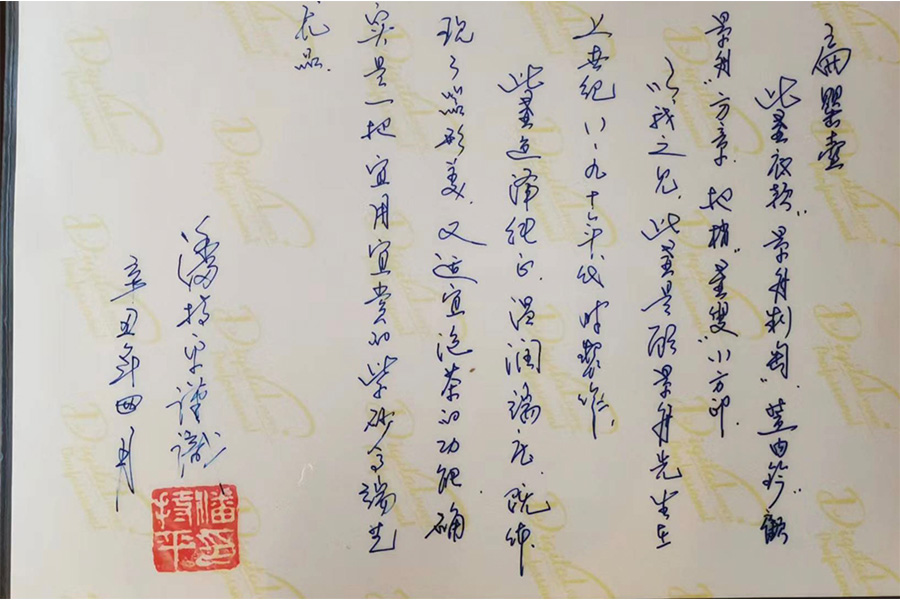 扁婴壶
此壶底款"景舟制陶"，盖内钤"顾
景舟"方章，把梢"壶叟"小方印。
以我之见，此壶是顾景舟先生在
上世纪八、九十年代时製作。
此壶造源纯正，温润端庄，既体
现了器形美，又适宜泡茶的功能，确
实是一把宜用宜赏的紫砂高端艺
术品。
潘持平谨識
辛丑年四月
潘持平印